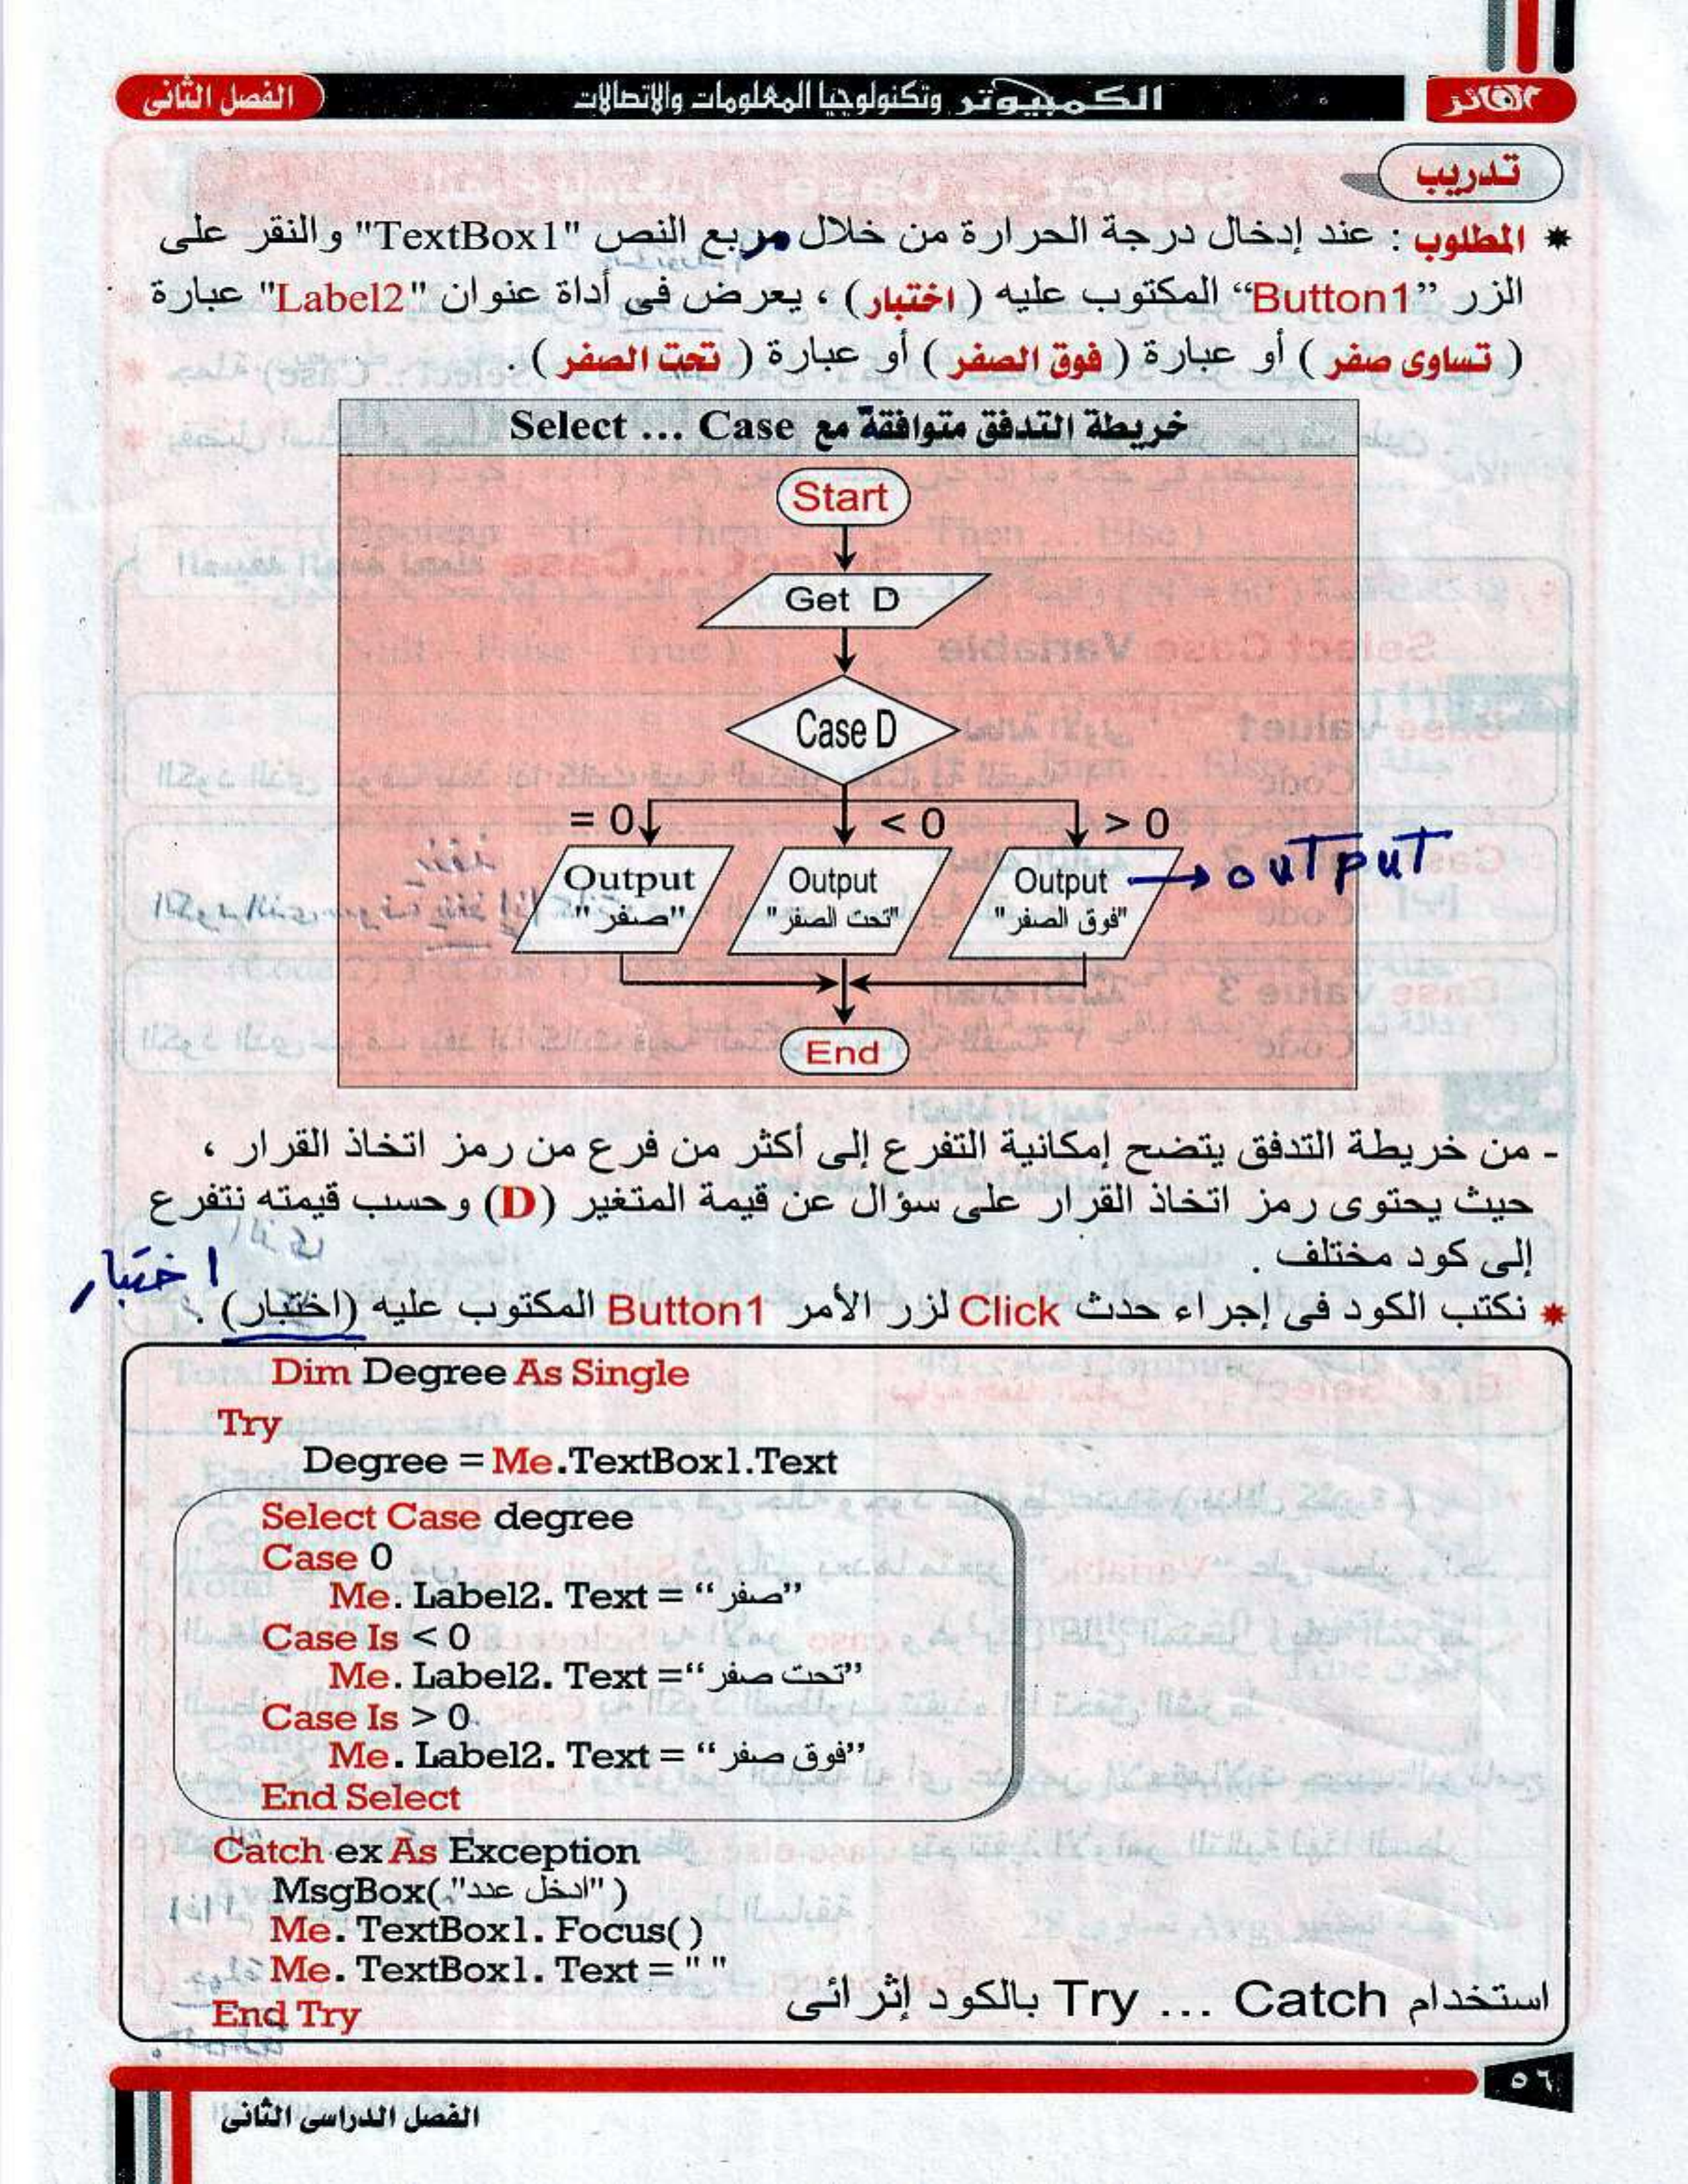 الفائز
الكمبيوتر وتكنولوجيا المعلومات والاتصالات
الفصل الثانى
تدريب
* المطلوب : عند إدخال درجة الحرارة من خلال مربع النص "TextBox1" والنقر على
الزر "Button1" المكتوب عليه ( اختبار ) ، يعرض فى أداة عنوان "Label2" عبارة
( تساوى صفر ) أو عبارة ( فوق الصفر ) أو عبارة ( تحت الصفر ) .
خريطة التدفق متوافقة مع Select ... Case
Start
Get D
Case D
= 0
< 0
> 0
Output
"صفر"
Output
"تحت الصفر"
Output
"فوق الصفر"
output
End
- من خريطة التدفق يتضح إمكانية التفرع إلى أكثر من فرع من رمز اتخاذ القرار ،
حيث يحتوى رمز اتخاذ القرار على سؤال عن قيمة المتغير (D) وحسب قيمته نتفرع
إلى كود مختلف .
اختبار
* نكتب الكود فى إجراء حدث Click لزر الأمر Button1 المكتوب عليه (اختبار) .
Dim Degree As Single
Try
Degree = Me.TextBox1.Text
Select Case degree
Case 0
Me. Label2. Text = “صفر”
Case Is < 0
Me. Label2. Text =“تحت صفر”
Case Is > 0
Me. Label2. Text = “فوق صفر”
End Select
Catch ex As Exception
MsgBox("ادخل عدد")
Me. TextBox1. Focus()
Me. TextBox1. Text = " "
End Try
استخدام Try ... Catch بالكود إثرائى
٥٦
الفصل الدراسى الثانى